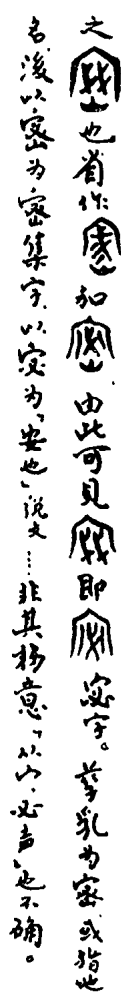 之也省作和由此可见即宓字。孳乳为密或指地
名後以密为密集字,以宓为「安也」说文……非其朔意,「从宀,必声」也不确。